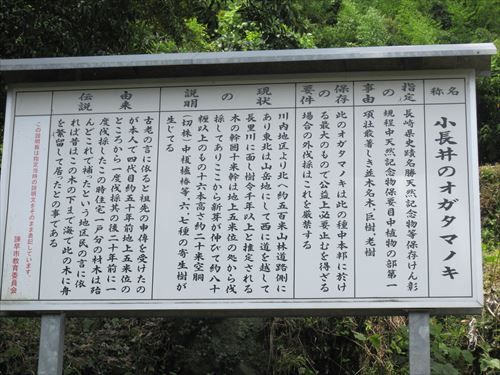 名称
小長井のオガタマノキ
指定の事由
長崎県史蹟名勝天然記念物等保存けん彰
規程中天然記念物保要目中植物の部第一
項社叢著しき並木名木、巨樹、老樹
保存要件
此のオガタマノキは此の種中本邦に於け
る最大のもので公益上必要止むを得ざる
場合の外伐採はこれを厳禁する
現状の説明
川内地区より北へ約五百米山林道路側に
あり東北は山岳地にして西に道を越して
長里川に面し樹令千年以上と推定される
木の幹囲十米幹は地上五米位の処から伐
採してありここから新芽が伸びて約八十
糎以上のもの十六本高さ約二十米空洞
(切株)中榎櫨椿等六、七種の寄生樹が
生じてる
由来伝説
古老の言に依ると祖先の申傳を受けたの
が本人で四代目約五十年前地上五米位の
ところから一度伐採其の後二十年前に一
度伐採したこの時住宅一戸分の材木は殆
んどこれで補ったという地区民の言に依
れば昔はこの木の下まで海で此の木に舟
を繋留して居ったとの事である
この説明板は指定当時の説明文をそのまま表記しています。
諫早市教育委員会